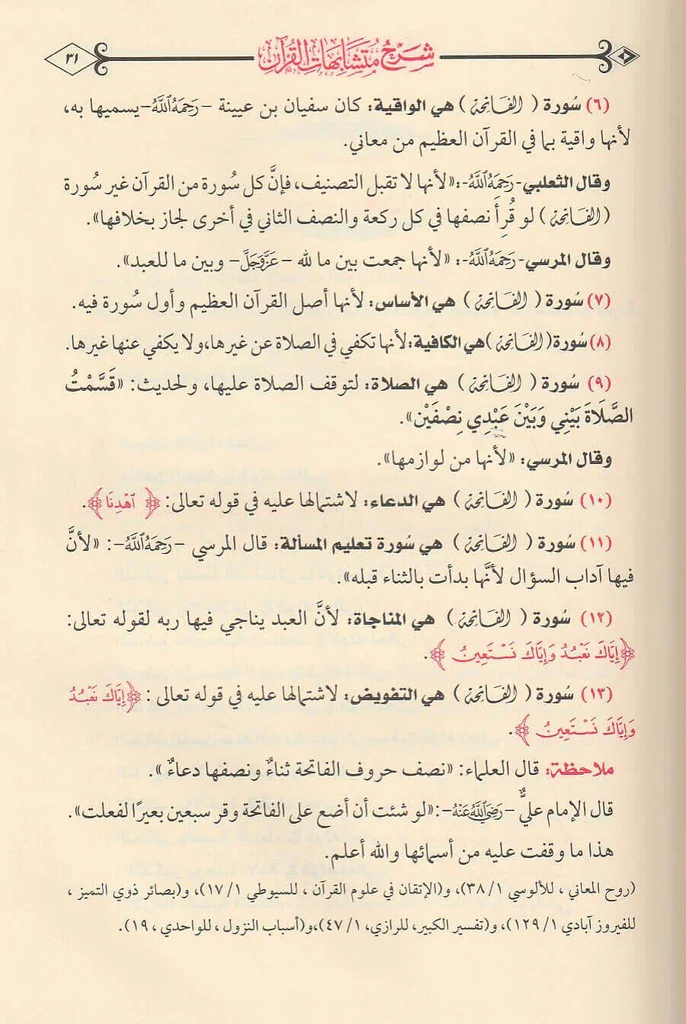 شَرْحُ مُتَشَابِهَاتِ القُرْآن
٣١
(٦) سُورة (الفَاتِحَة) هي الواقية: كان سفيان بن عيينة -رَحِمَهُ اللَّهُ- يسميها به،
لأنها واقية بما في القرآن العظيم من معاني.
وقال الثعلبي -رَحِمَهُ اللَّهُ-: «لأنها لا تقبل التصنيف، فإنَّ كل سُورة من القرآن غير سُورة
(الفَاتِحَة) لو قُرِأَ نصفها في كل ركعة والنصف الثاني في أخرى لجاز بخلافها».
وقال المرسي -رَحِمَهُ اللَّهُ-: «لأنها جمعت بين ما لله -عَزَّوَجَلَّ- وبين ما للعبد».
(٧) سُورة (الفَاتِحَة) هي الأساس: لأنها أصل القرآن العظيم وأول سُورة فيه.
(٨) سُورة (الفَاتِحَة) هي الكافية: لأنها تكفي في الصلاة عن غيرها، ولا يكفي عنها غيرها.
(٩) سُورة (الفَاتِحَة) هي الصلاة: لتوقف الصلاة عليها، ولحديث: «قَسَّمْتُ
الصَّلَاةَ بَيْنِي وَبَيْنَ عَبْدِي نِصْفَيْن».
وقال المرسي: «لأنها من لوازمها».
(١٠) سُورة (الفَاتِحَة) هي الدعاء: لاشتمالها عليه في قوله تعالى: ﴿ اهْدِنَا ﴾.
(١١) سُورة (الفَاتِحَة) هي سُورة تعليم المسألة: قال المرسي -رَحِمَهُ اللَّهُ-: «لأنَّ
فيها آداب السؤال لأنَّها بدأت بالثناء قبله».
(١٢) سُورة (الفَاتِحَة) هي المناجاة: لأنَّ العبد يناجي فيها ربه لقوله تعالى:
﴿إِيَّاكَ نَعْبُدُ وَإِيَّاكَ نَسْتَعِينُ ﴾.
(١٣) سُورة (الفَاتِحَة) هي التفويض: لاشتمالها عليه في قوله تعالى : ﴿إِيَّاكَ نَعْبُدُ
وَإِيَّاكَ نَسْتَعِينُ ﴾.
ملاحظة: قال العلماء: «نصف حروف الفاتحة ثناءٌ ونصفها دعاءٌ ».
قال الإمام عليٌّ -رَضِيَ اللَّهُ عَنْهُ-: «لو شئت أن أضع على الفاتحة وقر سبعين بعيرًا لفعلت».
هذا ما وقفت عليه من أسمائها والله أعلم.
(روح المعاني ، للألوسي ١/ ٣٨)، و(الإتقان في علوم القرآن ، للسيوطي ١/ ١٧)، و(بصائر ذوي التميز ،
للفيروز آبادي ١/ ١٢٩)، و(تفسير الكبير، للرازي، ١/ ٤٧)، و(أسباب النزول ، للواحدي ، ١٩).